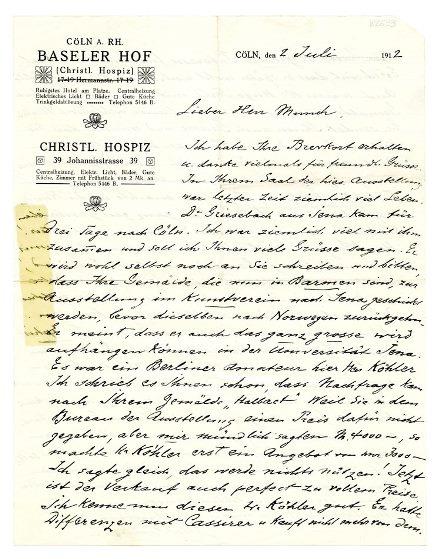 CÖLN A. RH.
BASELER HOF
(Christl. Hospiz)
17-19 Hermannstr. 17-19
Ruhigstes Hotel am Platze. Centralheizung
Elektrisches Licht □ Bäder □ Gute Küche
Trinkgeldablösung Telephon 5146 B.
CHRISTL. HOSPIZ
39 Johannisstrasse 39
Centralheizung, Elektr. Licht, Bäder, Gute
Küche, Zimmer mit Frühstück von 2 Mk. an
Telephon 5146 B.
CÖLN, den 2 Juli 1912
Lieber Herr Munch.
Ich habe Ihre Brevkort erhalten
u danke vielmals für freundl. Grüsse.
In Ihrem Saal der hies. Ausstellung
war letzter Zeit ziemlich viel Leben.
Dr Griesebach aus Jena kam für
Drei Tage nach Cöln. Ich war ziemlich viel mit ihm
zusammen und soll ich Ihnen viele Grüsse sagen. Er
wird wohl selbst noch an Sie schreiben und bitten,
dass Ihre Gemälde, die nun in Barmen sind, zur
Ausstellung im Kunstverein nach Jena geschickt
werden, bevor dieselben nach Norwegen zurückgehn.
Er meint, dass er auch das ganz grosse wird
aufhängen können in der Universität Jena
Es war ein Berliner amateur hier Hr Köhler
Ich schrieb es Ihnen schon, dass Nachfrage kam
nach Ihrem Gemälde Weil die in dem
Bureau der Ausstellung einen Preis dafür nicht
gegeben, aber mir mündlich sagten M. 4000 –, so
machte Hr Köhler erst ein Angebot von 3000 –
Ich sagte gleich das werde nichts nützen. Jetzt
ist der Verkauf auch perfect zu vollem Preise.
Ich kenne nun diesen Hr Köhler gut. Er hatte
Differenzen mit Cassirer u kauft nicht mehr von dem.